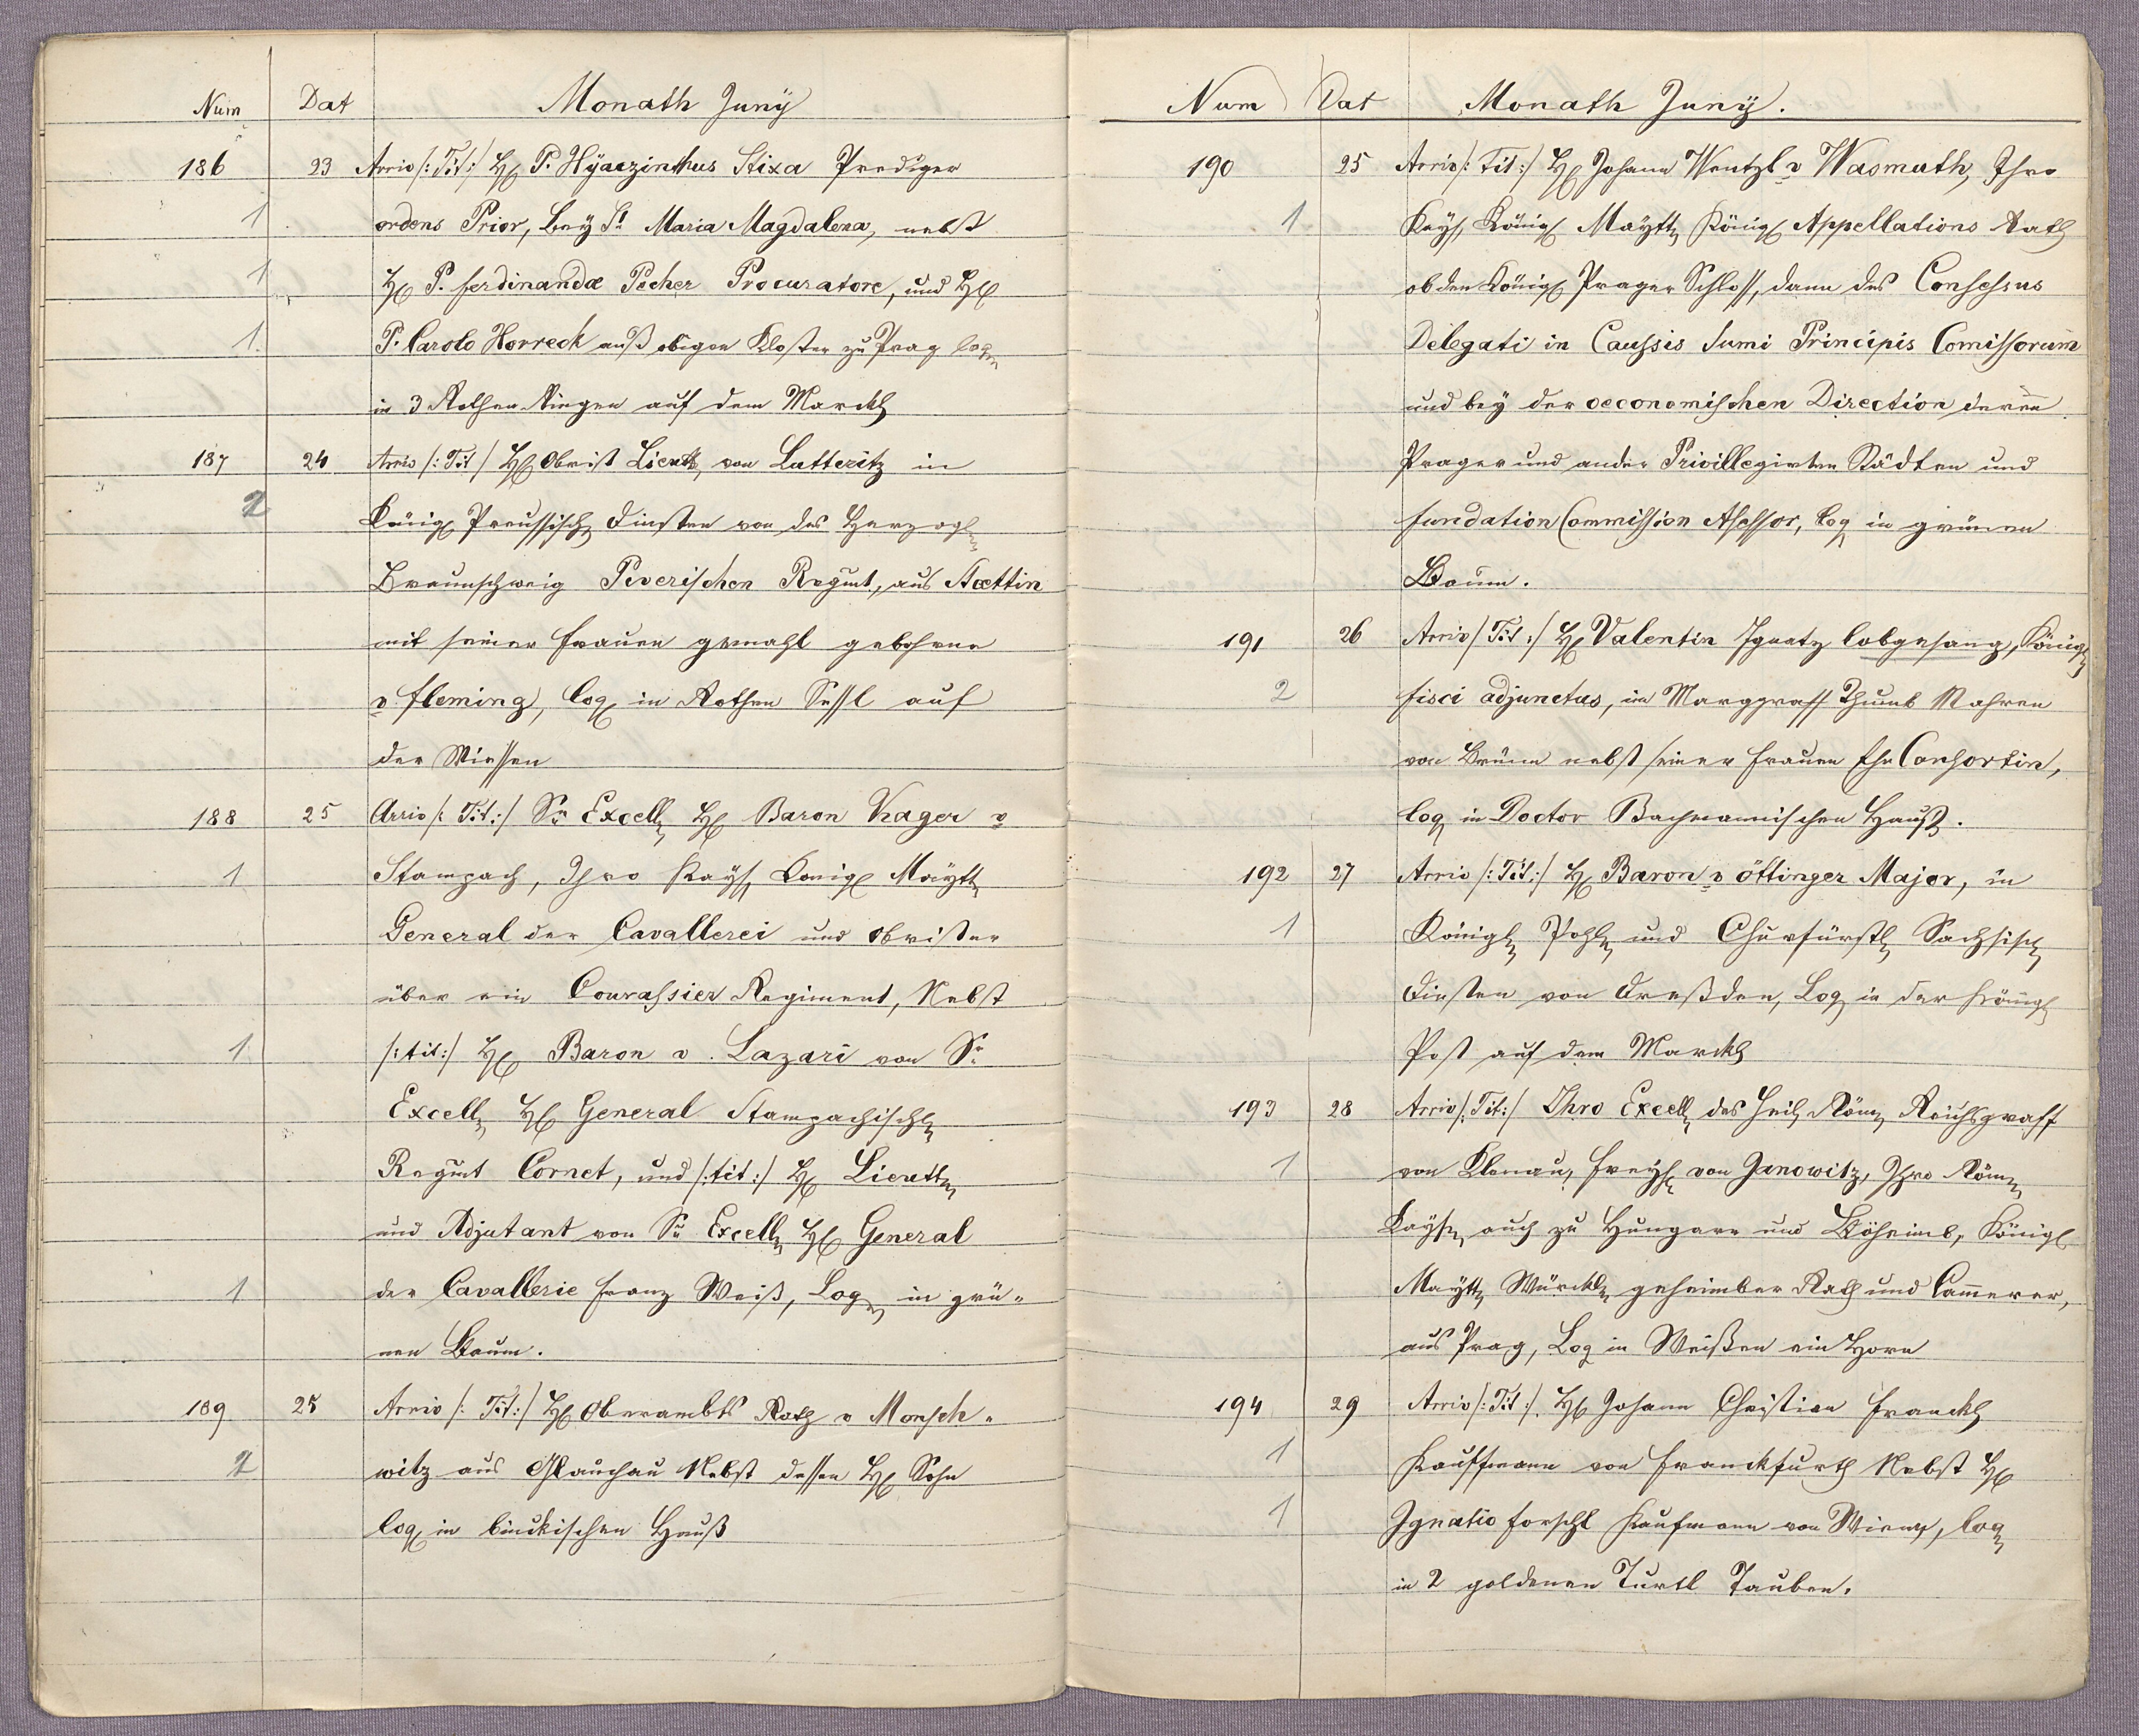 Num Dat Monath Junÿ
186 23 Arriv /: Tit: / H P. Hÿaczinthus Stixa Prediger
1 ordens Prior, bey St Maria Magdalena, nebst
1 H P. ferdinandæ Pecher Procuratore, und H
1. P. Carolo Horrech auß obigen Kloster zu Prag log
in 3 Rothen Ringen auf dem Marckh
187 24 Arriv /: Tit / H Obrist Lieutt, von Latteritz in
2 König Preussisch Diensten von des Herzogl
Braunschweig Peverischen Regmt, aus Stettin
mit seiner frauen gemahl gebohrne
v fleming, log in Rothen Sessl auf
der Wiessen
188 25 Arriv /: Tit: / Sr Excell H Baron Kager v
1 Stampach, Ihro Kays König Mäytt
General der Cavallerei und Obrister
über ein Courassier Regiment, Nebst
1 /: tit: / H Baron v. Lazari von Sr
Excell H General Stampachisch
Regmt Cornet, und /: tit: / H Lieutt
und Adjutant von Sr Excell H General
1 der Cavallerie franz Weiß, Log in grü-
nen Baum.
189 25 Arriv /: Tit: / H Oberambts Rath v Monsch-
2 witz aus Glauchau Nebst dessen H Sohn
log in Hauß
Num Dat Monath Junÿ.
190 25 Arriv /: Tit: / H Johann Wentzl v Wasmuth, Ihro
1 Kays König Maÿtt König Appellations Rath
ob den König Prager Schloss, dann des Consessus
Delegati in Caussis Sumi Principis Comissorum
und beÿ der oeconomischen Direction deren
Prager und ander Privillegirten Städten und
fundation Commission Assessor, log in grünen
Baum.
191 26 Arriv / Tit: / H Valentin Ignatz lobgesang, König
2 fisci adjunctus, im Marggraff Thumb Mahren
von Brünn nebst seiner frauen Ehe Consortin,
log in Doctor Bachmannischen Hauß.
192 27 Arriv /: Tit: / H Baron v öttinger Major, in
1 Königl Pohl und Churfürstl Sachsisch
Diensten von Dreßden, Log in der König
Post auf dem Marckh
193 28 Arriv /: Tit: / Ihro Excell des Heil Röm Reichsgraff
1 von Klenau, freyh von Janowitz, Ihro Röm
Kays auch zu Hungarn und Böheimb, König
Maÿtt Würckl geheimber Rath und Cammerer,
aus Prag, Log in Weißen ein Horn
194 29 Arriv /: Tit: /. H Johann Christian franckh
1 Kauffmann von franckfurth Nebst H
1 Ignatio forschl Kaufmann von Wienn, log
in 2 goldenen Turtl Tauben.